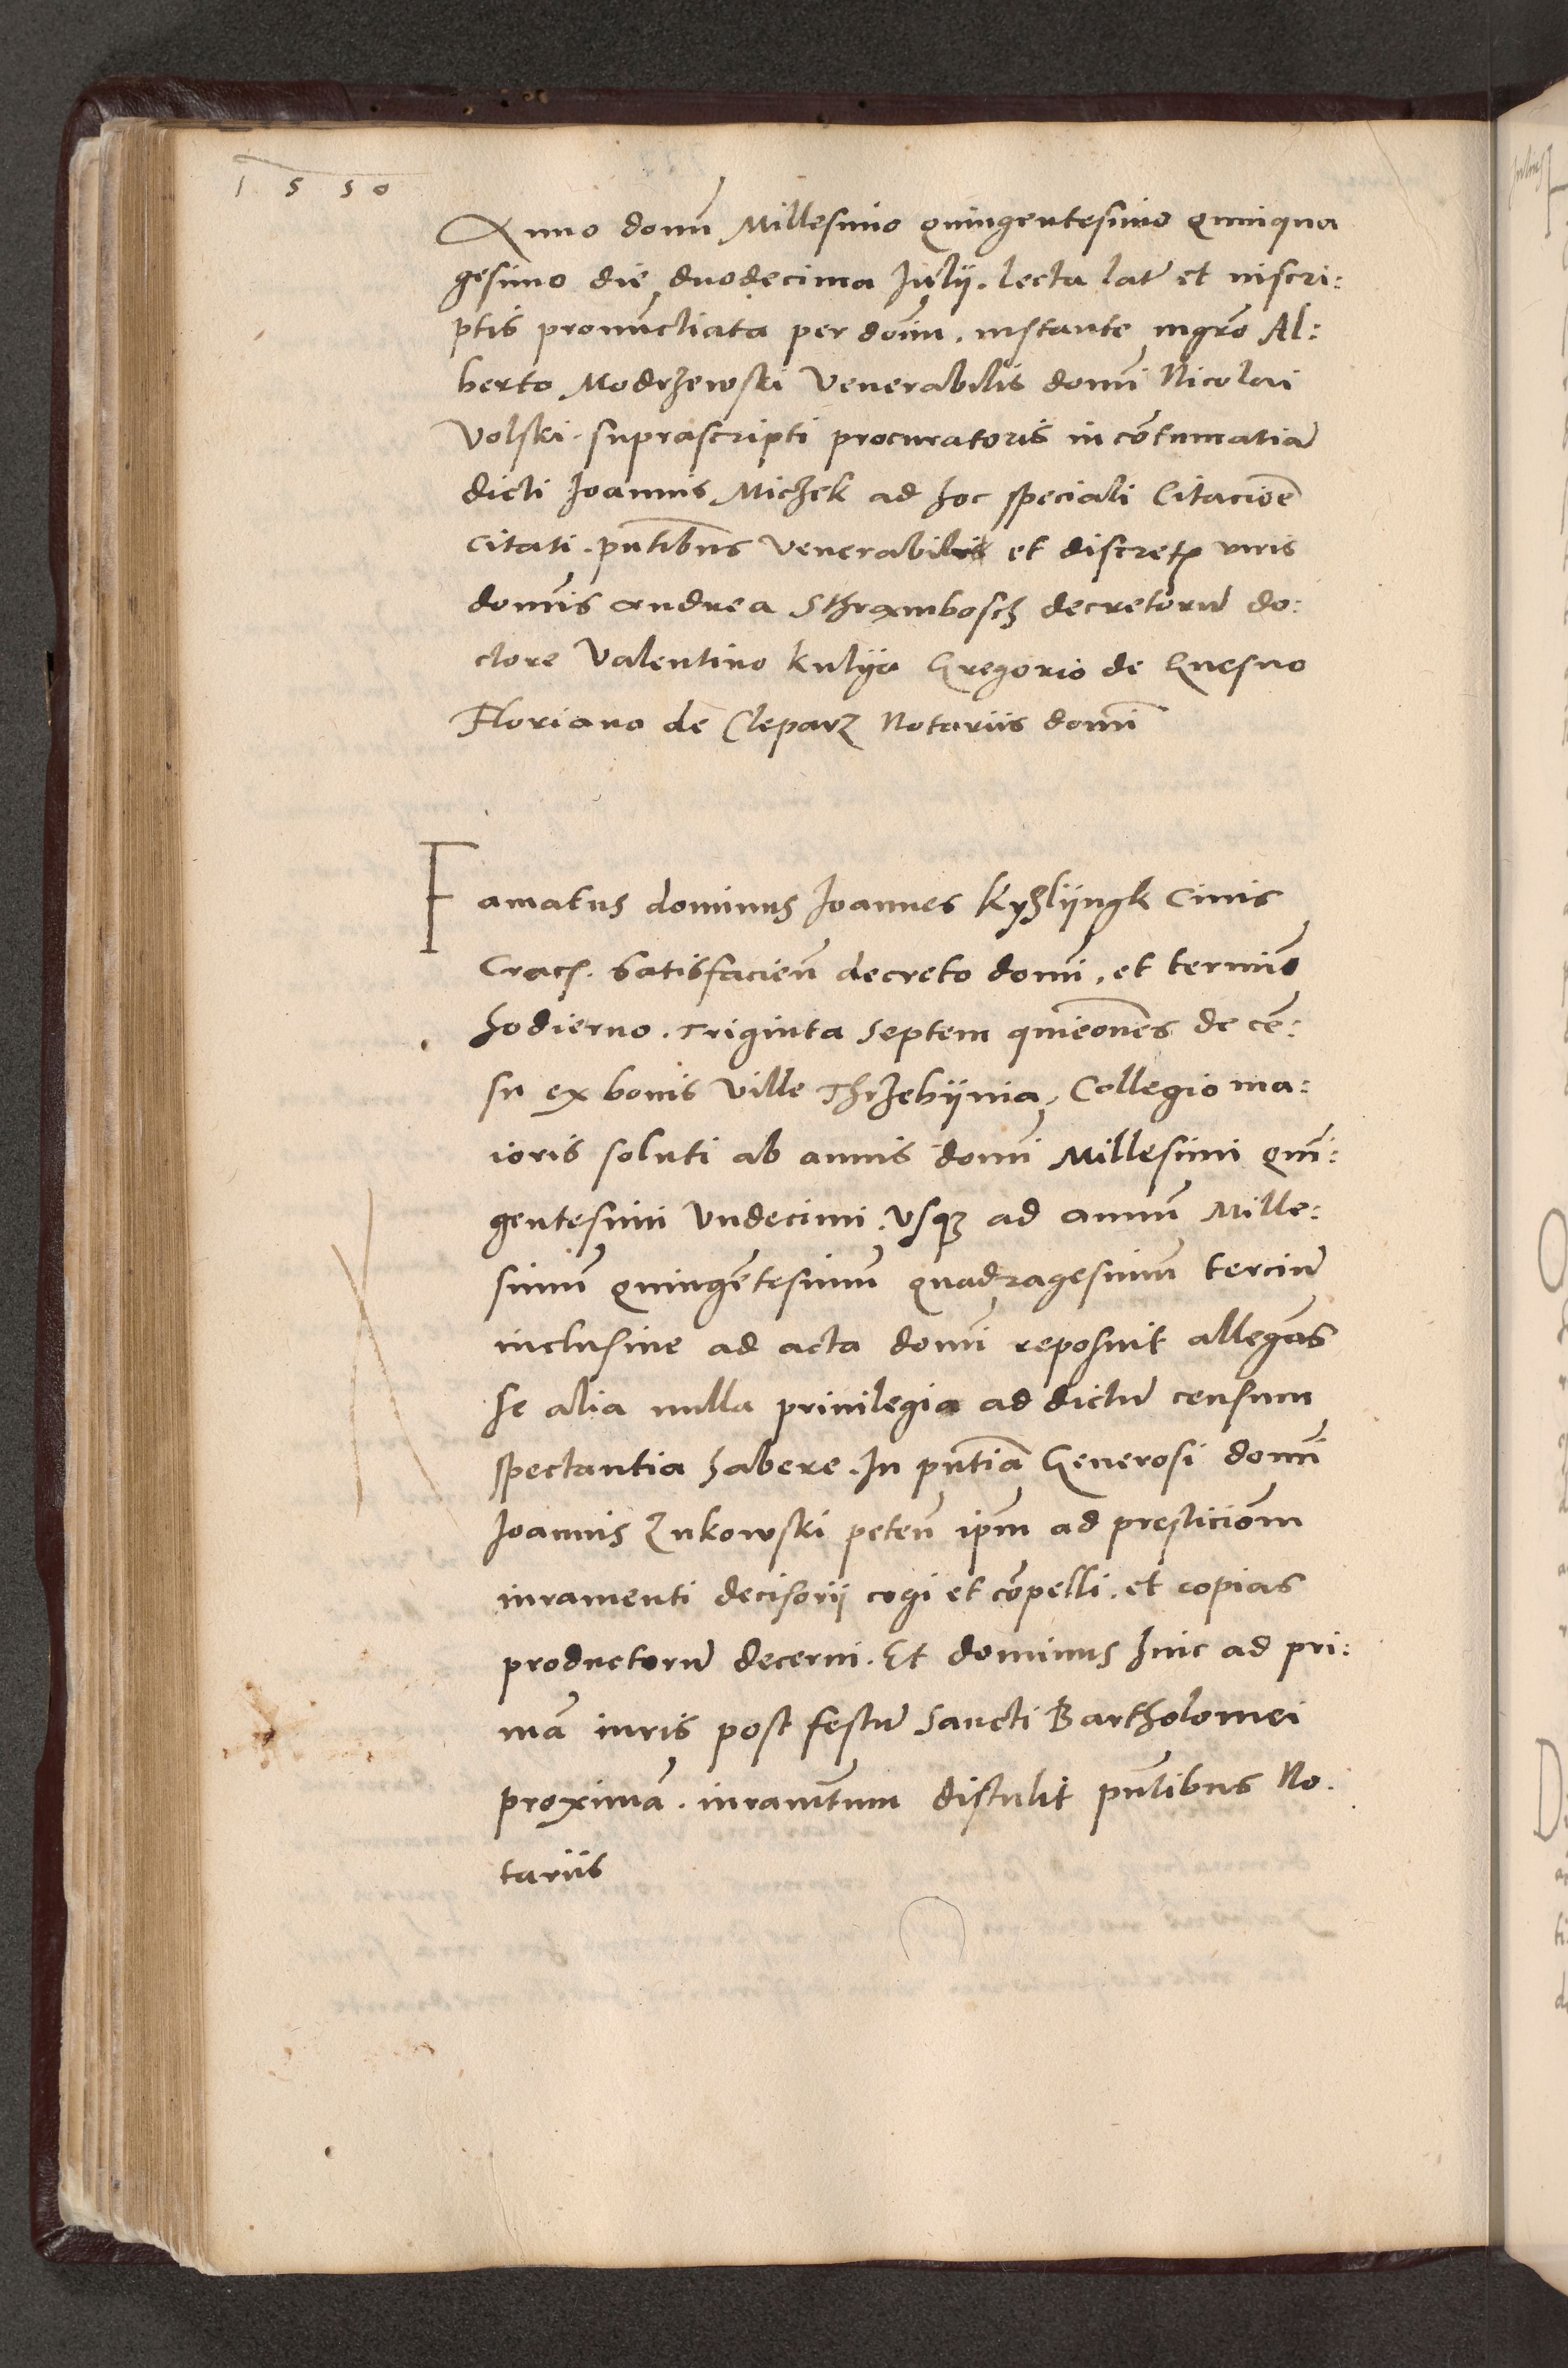 1550
Anno domi Millesimo quingentesimo quinqua
gesimo die duodecima Julij. lecta lat et inscri:
ptis pronunctiata per dom. instante mgro Al:
berto Modrzewski Venerabilis domi Nicolai
Volski. suprascripti procuratoris in cotumatia
dicti Joannis Miczek ad hoc speciali Citacioe
citati. pntibus venerabilis et discret viris
domis Andrea Sthrambosch decretoru do:
ctore Valentino kulija Gregorio de Gnesno
Floriano de Cleparz Notariis domi
Famatus dominus Joannes kyszlijngk Civis
Crac. Satisfacien decreto domi. et termio
hodierno. Triginta Septem quieones de ce:
su ex bonis ville Thrzebijnia, Collegio ma:
ioris soluti ab annis domi Millesimi quī:
gentesimi Undecimi. Usqz ad annu Mille:
simu quingetesimum quadragesimum terciu
inclusive ad acta domi reposuit allegas
se alia nulla privilegia ad dictu censum
spectantia habere. In pntia Generosi domi
Joannis Zukowski peten ipm ad presticiom
iuramenti decisorij cogi et copelli. et copias
productoru decerni. Et dominus huic ad pri:
ma iuris post festu Sancti Bartholomei
proxima. iuramtum distulit pntibus No.
tariis